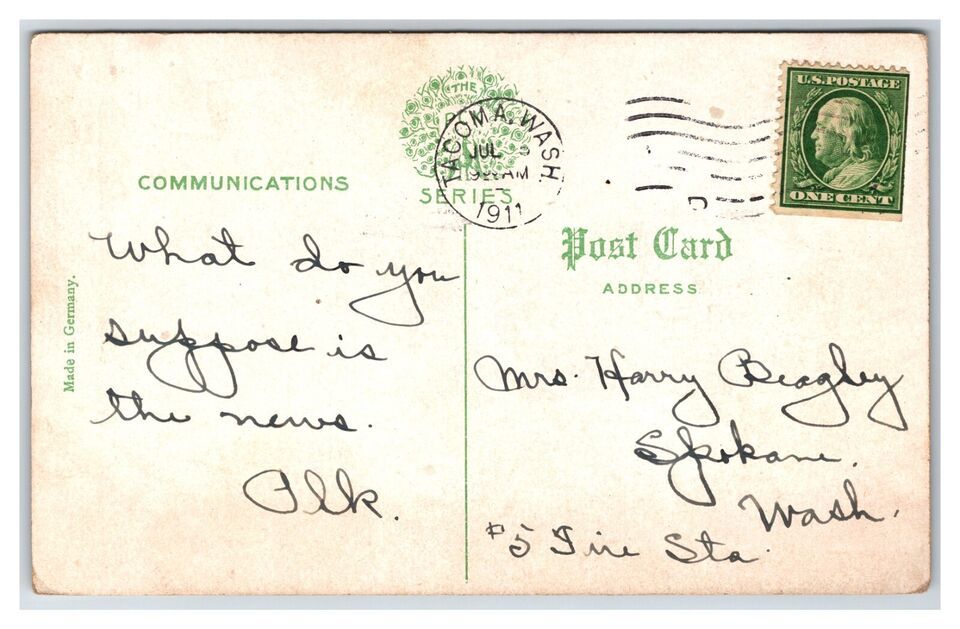 COMMUNICATIONS
THE
SERIES
TACOMA, WASH.
JUL
AM
1911
U.S. POSTAGE
ONE CENT
Post Card
ADDRESS
Made in Germany.
What do you
suppose is
the news.
Mrs. Harry Beagley
Spokane.
Wash.
#5 Fire Sta.